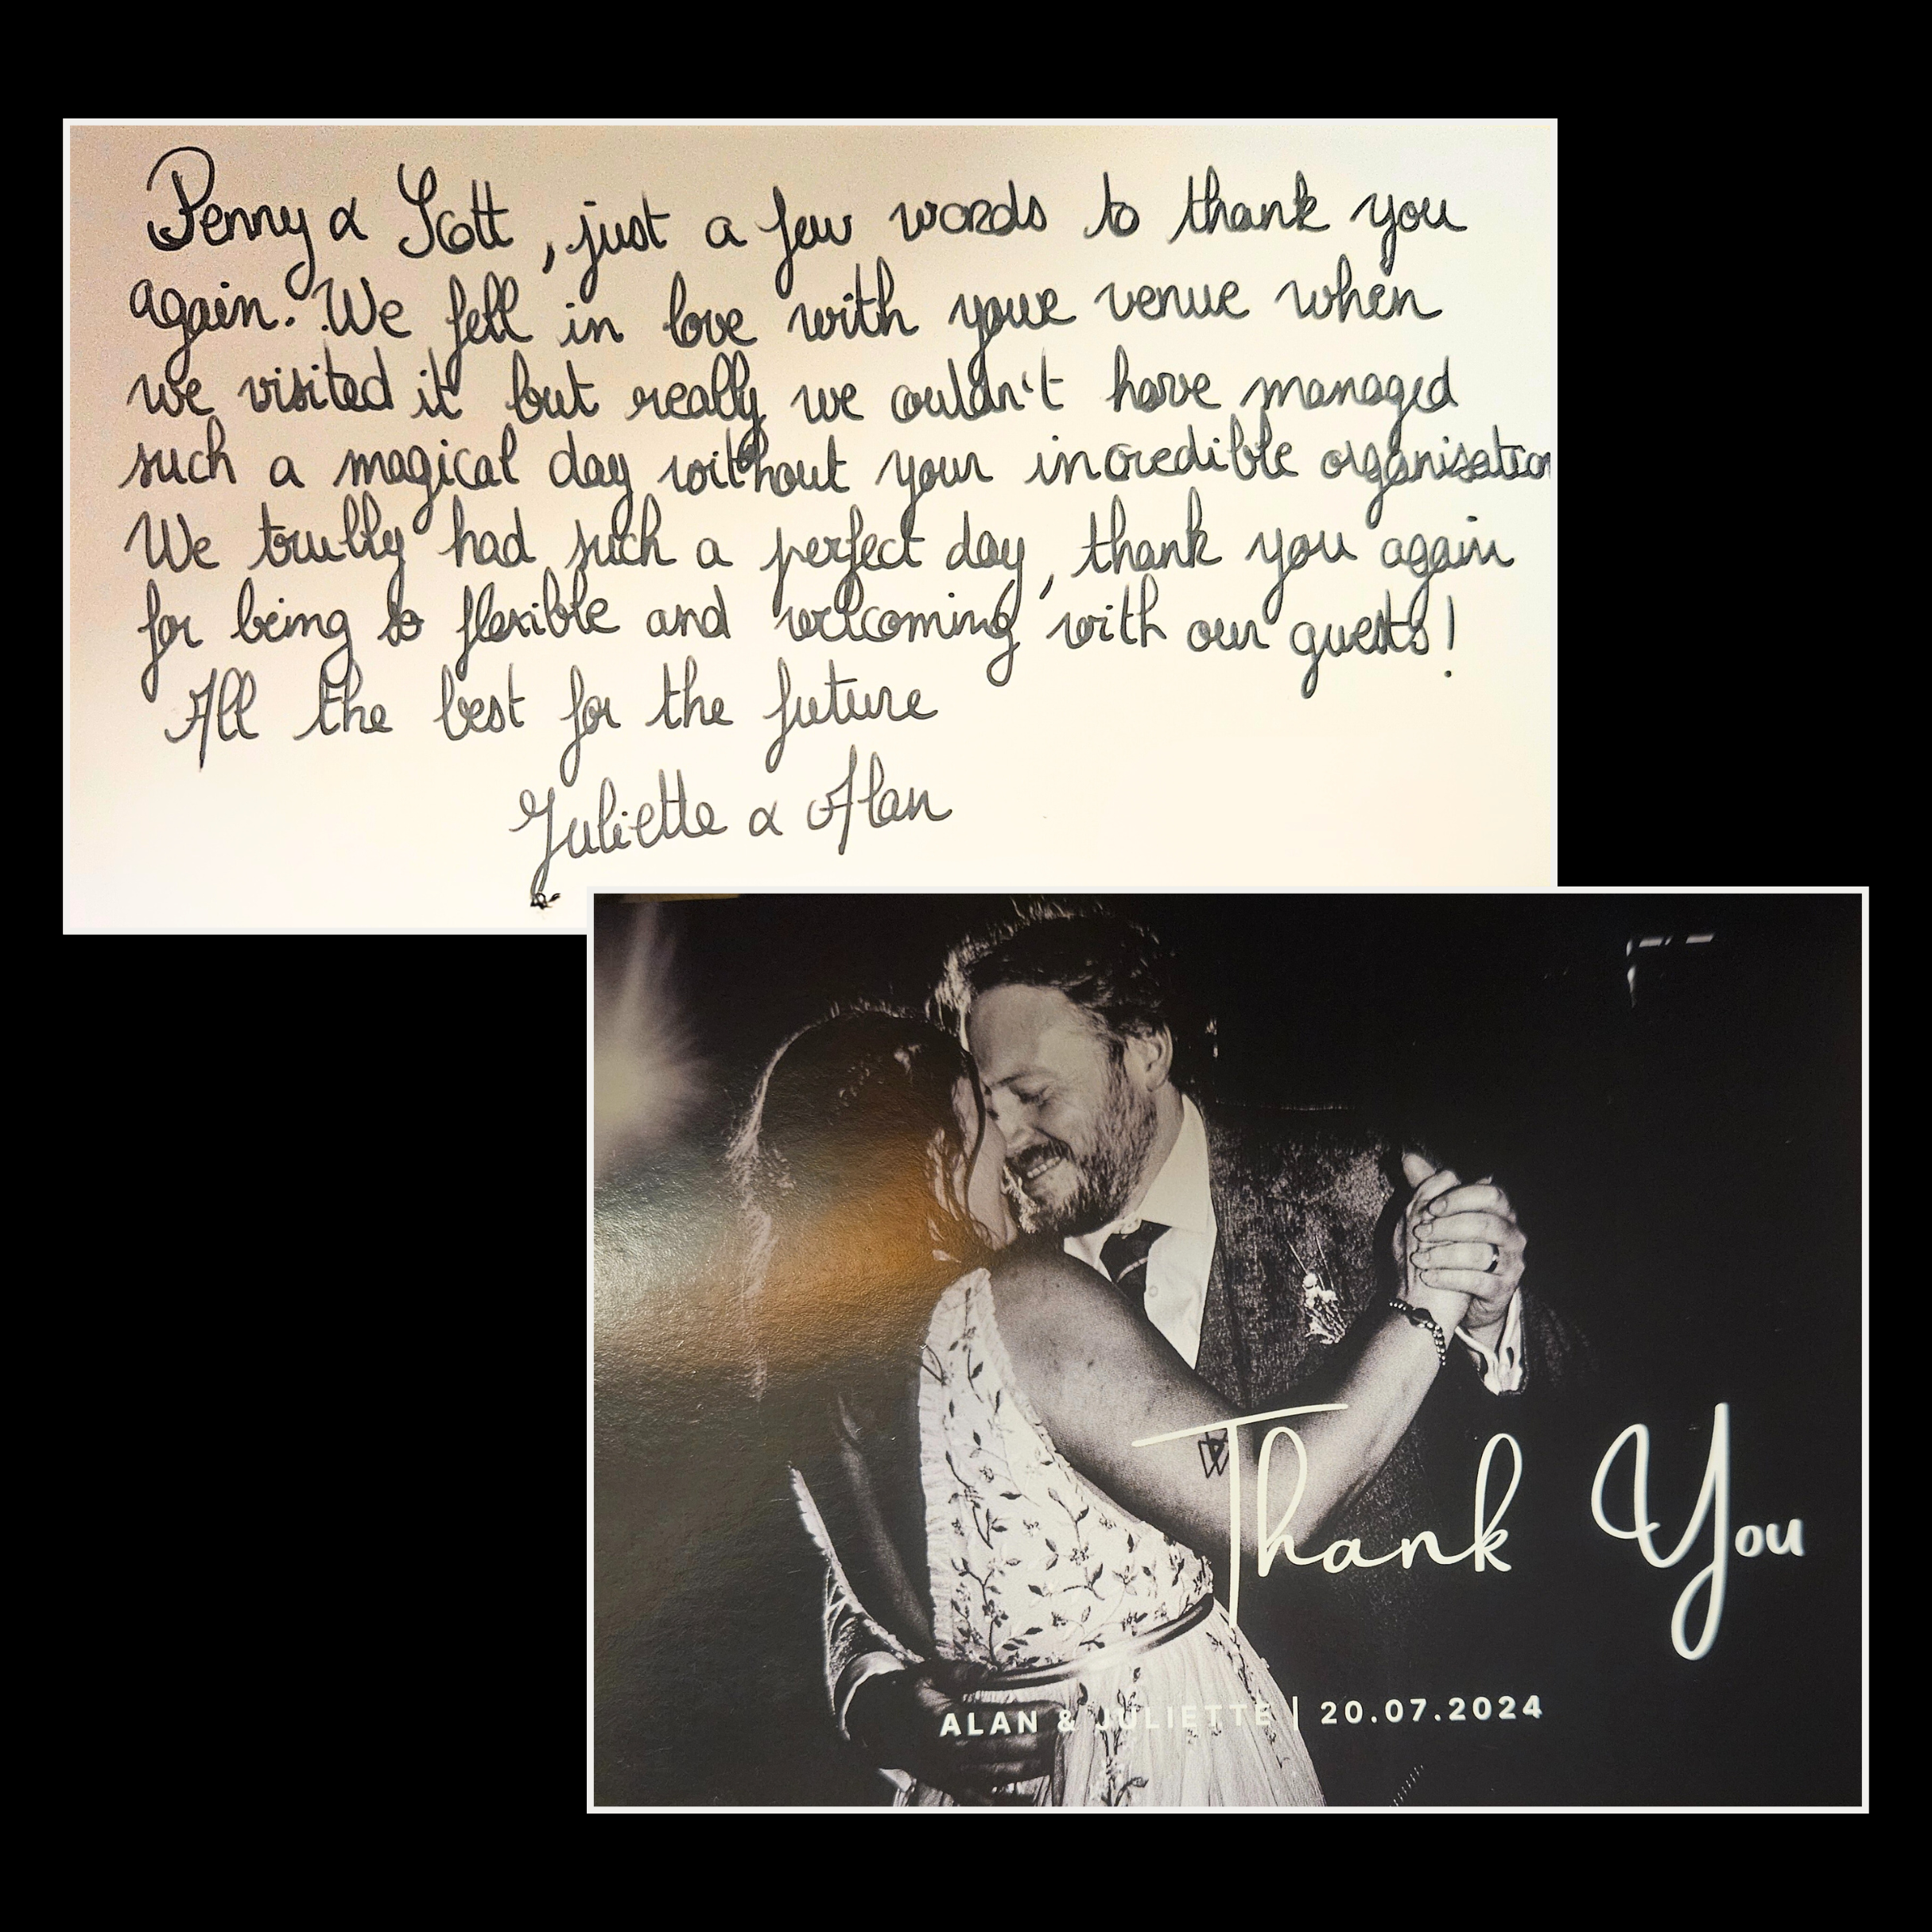 Penny & Scott, just a few words to thank you
again. We fell in love with your venue when
we visited it but really we couldn't have managed
such a magical day without your incredible organisation
We trully had such a perfect day, thank you again
for being so flexible and welcoming with our guests!
All the best for the future
Juliette & Alan
Thank You
ALAN & JULIETTE | 20.07.2024